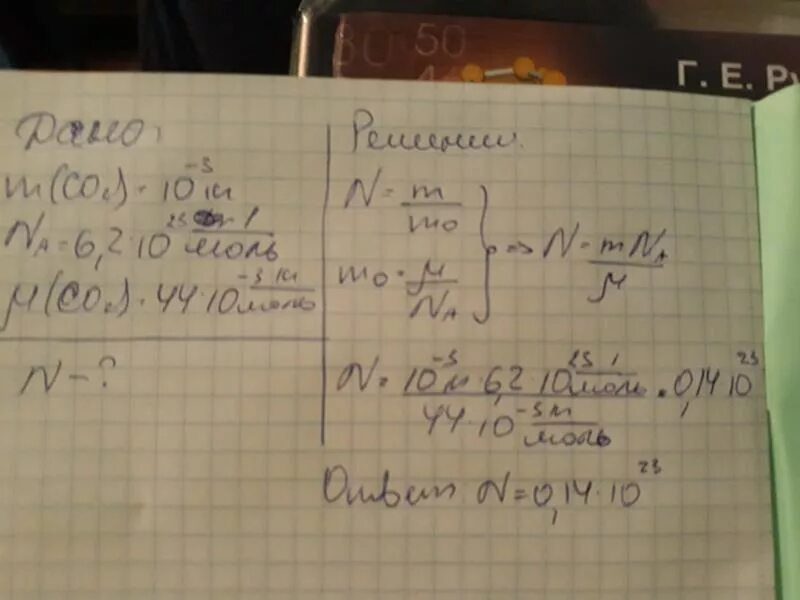 50
Г. Е. Ру
Дано:
m(CO₂) = 10⁻³ кг
Nₐ = 6,2·10²³ 1/моль
μ(CO₂) = 44·10⁻³ кг/моль
N - ?
Решении:
N = m/m₀
m₀ = μ/Nₐ
} => N = mNₐ/μ
N = 10⁻³ кг · 6,2·10²³ 1/моль / 44·10⁻³ кг/моль = 0,14·10²³
Ответ: N = 0,14·10²³